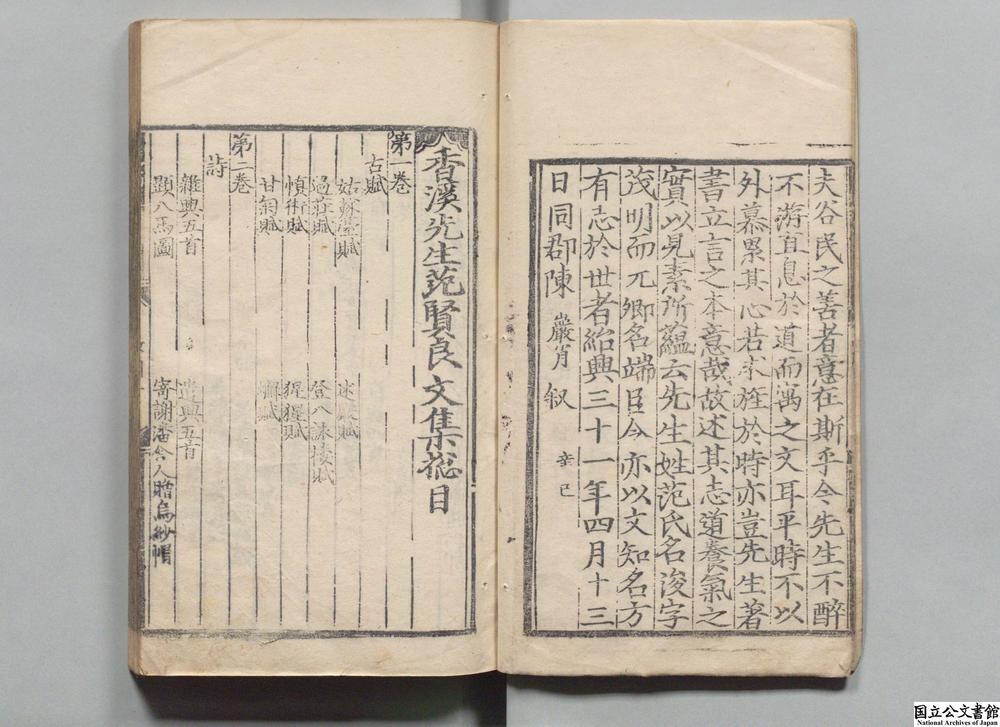 夫谷民之善者意在斯乎今先生不醉
不游直息於道而寓之文耳平時不以
外慕累其心若求旌於時亦豈先生著
書立言之本意哉故述其志道養氣之
實以見素所蘊云先生姓范氏名浚字
茂明而兀卿名端臣今亦以文知名方
有志於世者紹興三十一年四月十三
日同郡陳 巖肖 叙 辛巳
香溪先生范賢良文集揔目
第一卷
古賦
姑蘇臺賦
過莊賦 登八詠樓賦
慎術賦 猩猩賦
甘菊賦 蠏賦
第二卷
詩
雜興五首 遣興五首
題八馬圖 寄謝潘舍人贈烏紗帽
国立公文書館
National Archives of Japan